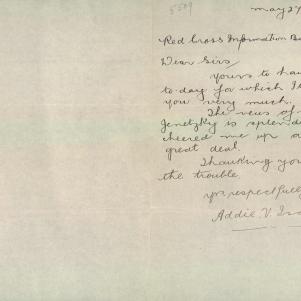 5509
may 27
Red Cross Information Bu
Dear Sirs
yours to han
to-day for which I
you very much.
The news of
Jenetzky is splend
cheered me up a
great deal.
Thanking you
the trouble.
yrs respectfully
Addie V.